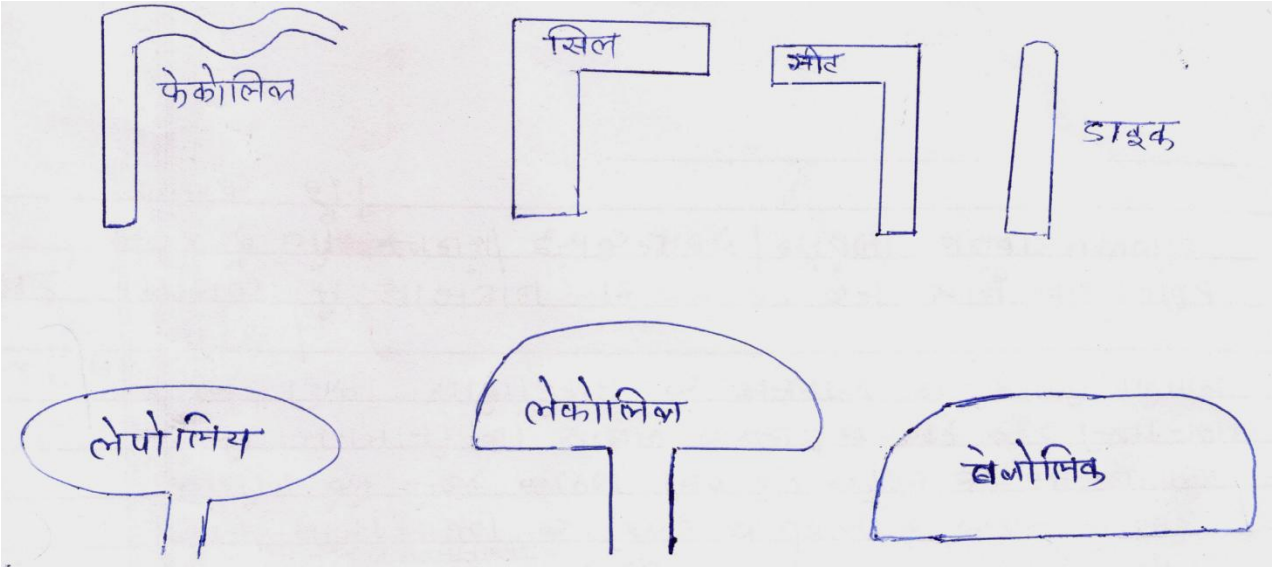 फेकोलिथ
सिल
शीट
डाइक
लेपोलिथ
लेकोलिथ
बेथोलिक